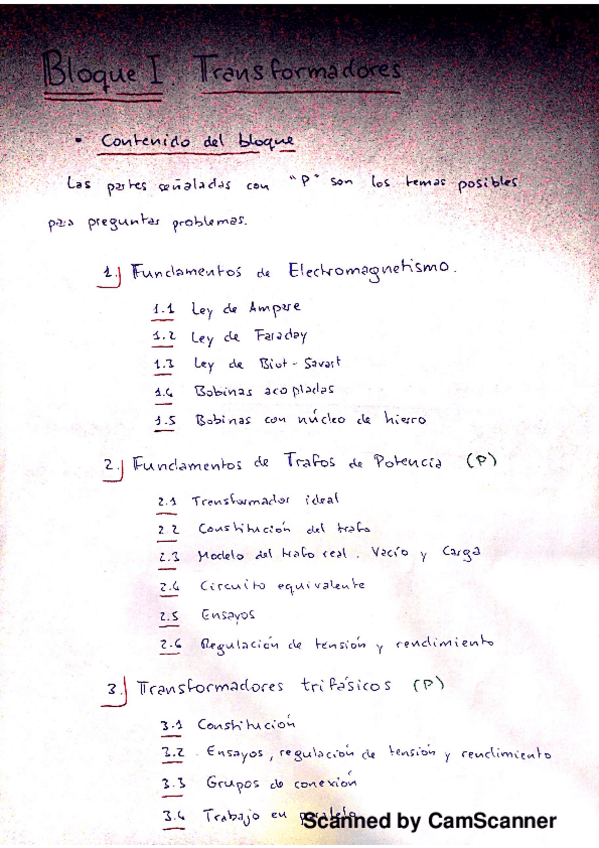 Bloque I. Transformadores
• Contenido del bloque
Las partes señaladas con "P" son los temas posibles
para preguntas problemas.
1. Fundamentos de Electromagnetismo.
1.1 Ley de Ampere
1.2 Ley de Faraday
1.3 Ley de Biot-Savart
1.4 Bobinas acopladas
1.5 Bobinas con núcleo de hierro
2. Fundamentos de Trafos de Potencia (P)
2.1 Transformador ideal
2.2 Constitución del trafo
2.3 Modelo del trafo real. Vacío y Carga
2.4 Circuito equivalente
2.5 Ensayos
2.6 Regulación de tensión y rendimiento
3. Transformadores trifásicos (P)
3.1 Constitución
3.2 Ensayos, regulación de tensión y rendimiento
3.3 Grupos de conexión
3.4 Trabajo en paralelo
Scanned by CamScanner